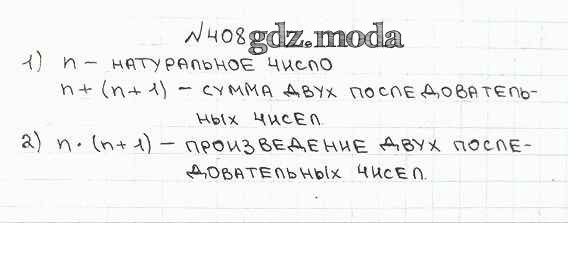 №408 gdz.moda
1) n – НАТУРАЛЬНОЕ ЧИСЛО
n + (n + 1) – СУММА ДВУХ ПОСЛЕДОВАТЕЛЬ-
НЫХ ЧИСЕЛ.
2) n · (n + 1) – ПРОИЗВЕДЕНИЕ ДВУХ ПОСЛЕ-
ДОВАТЕЛЬНЫХ ЧИСЕЛ.